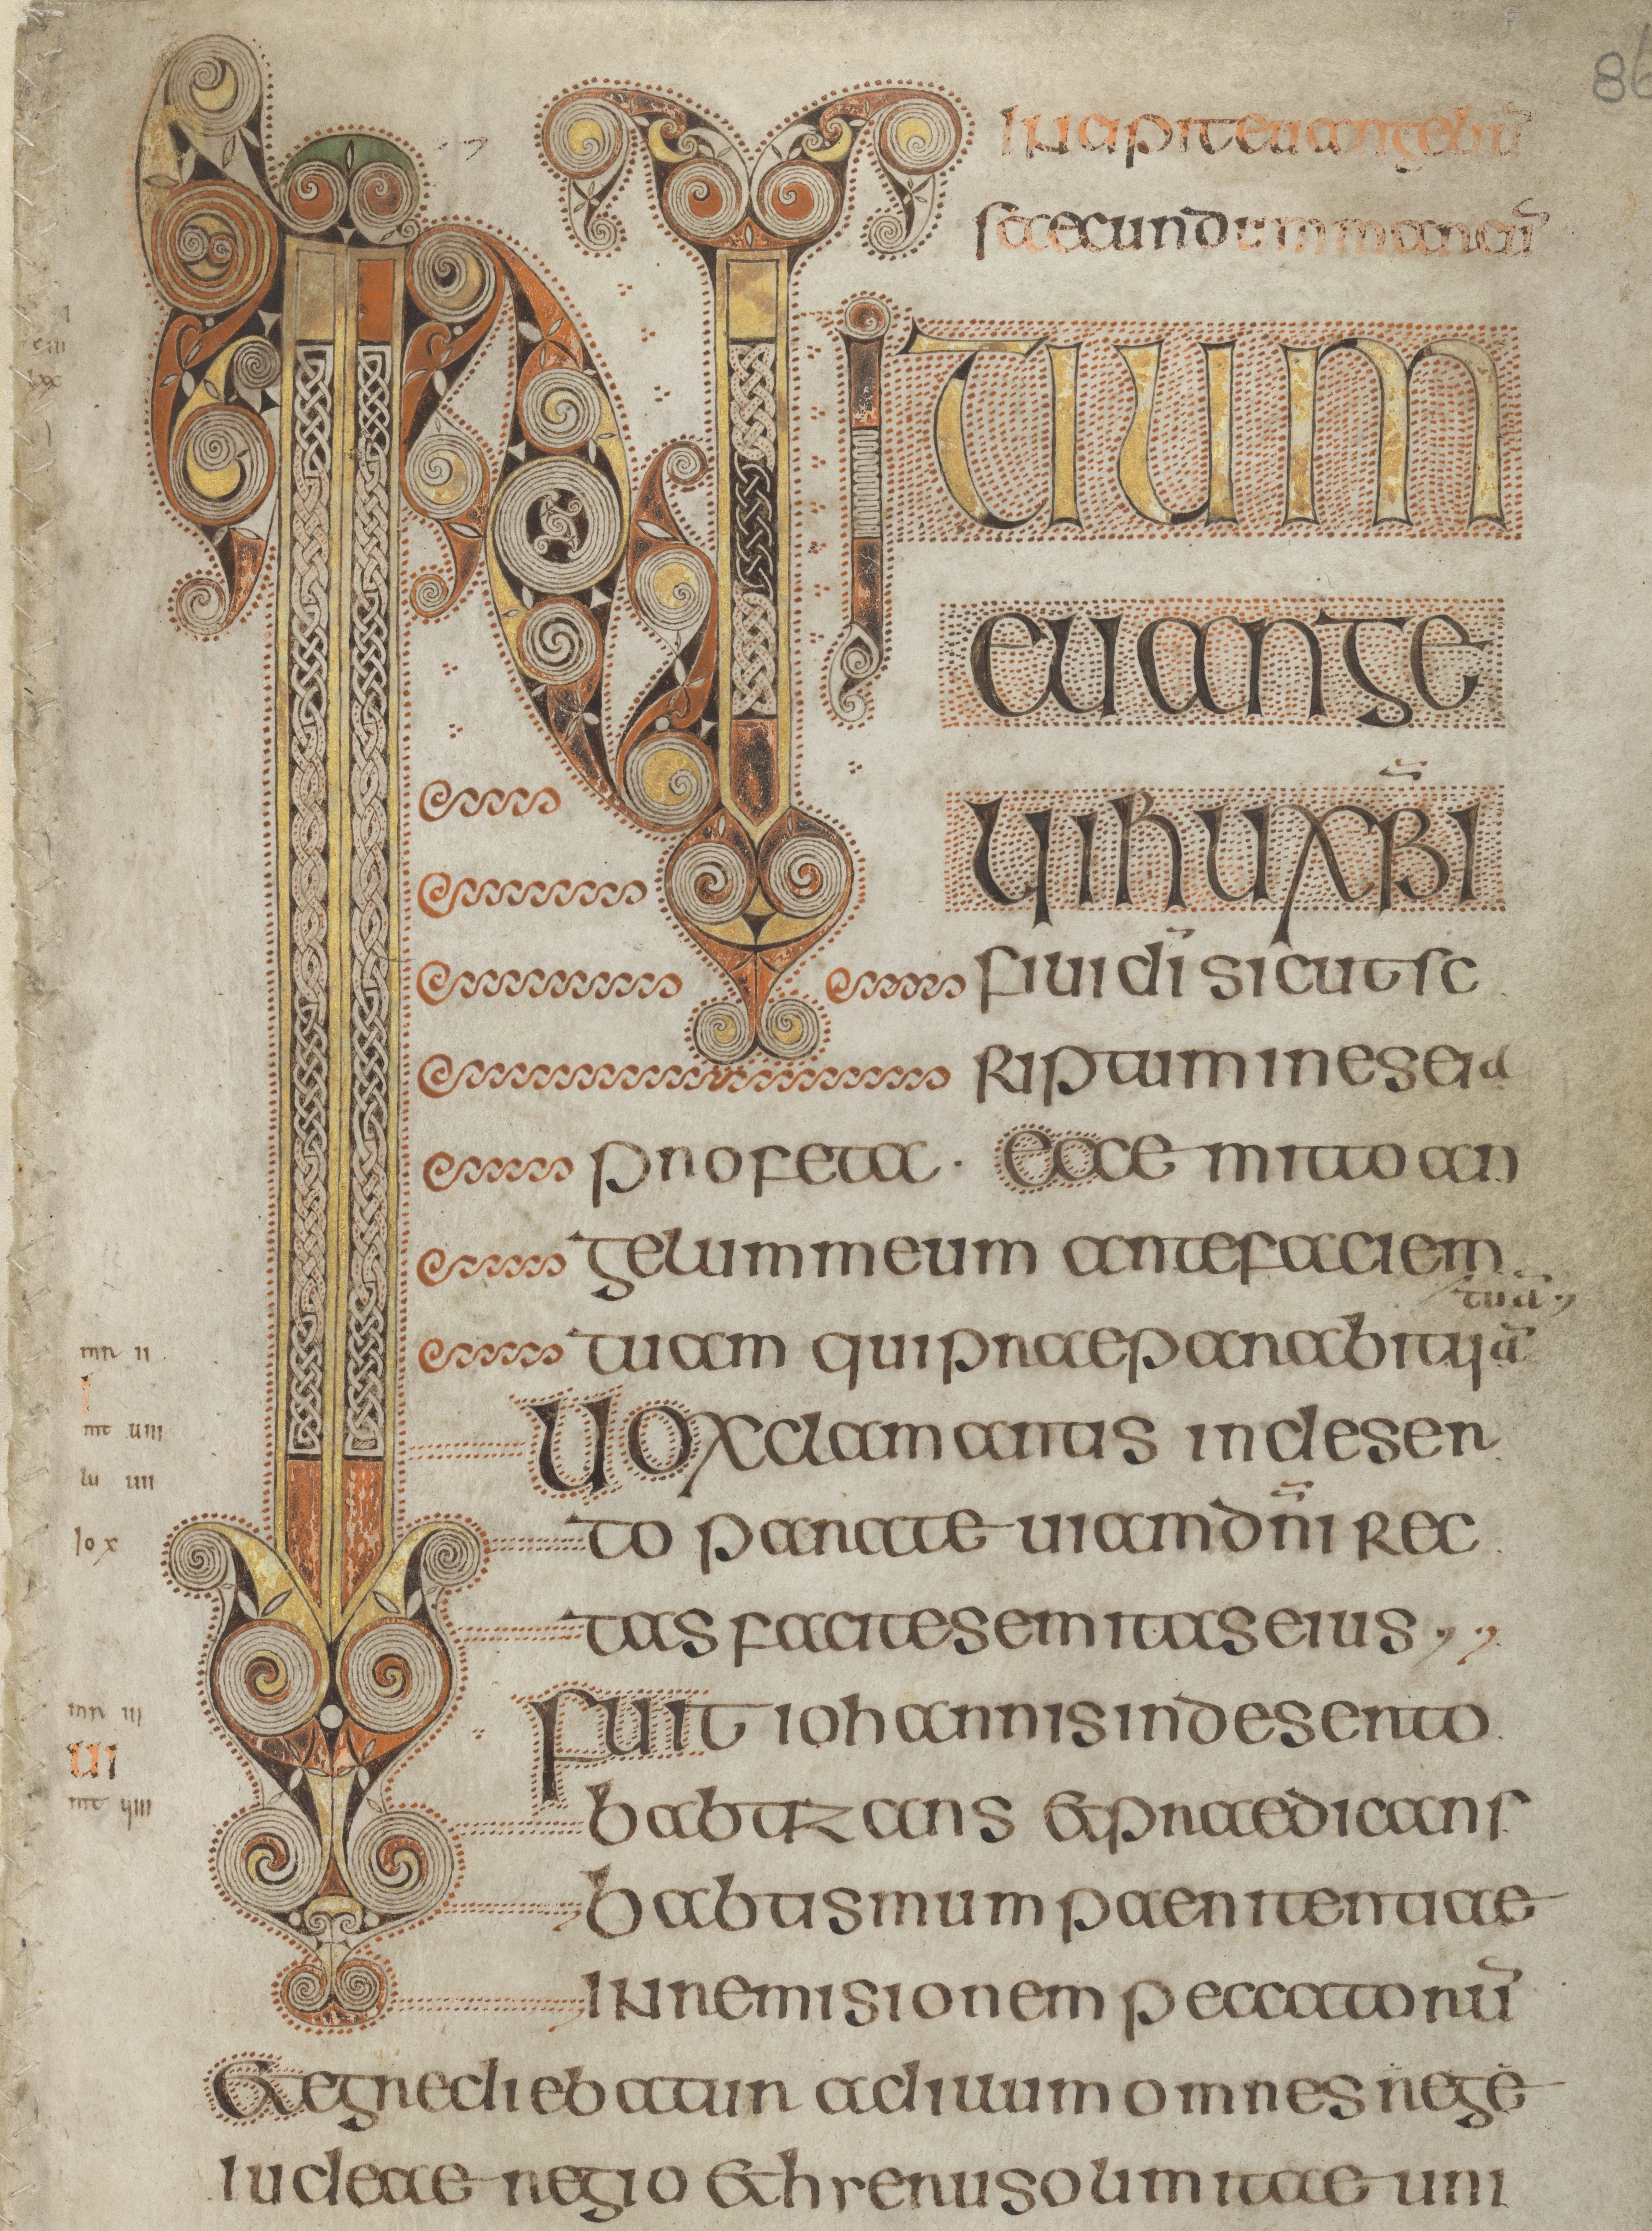 86
Incipit euangeliū
secundum marcū
INITIUM
euange
lii ihū xp̄i
fili di̅ sicut sc
riptum in eseia
profeta · Ecce mitto an
gelum meum ante faciem
tuam qui praeparabit uia
tuā
Uox clamantis in deser
to parate uiam dn̄i rec
tas facite semitas eius
Fuit iohannis in deserto
babtizans & praedicans
babtismum paenitentiae
IN remisionem peccatorū
& egrediebatur ad illum omnes rege
iudeae regio & hierusolimitae uni
mr ii
i
mt uiii
lu uii
io x
mr iii
ui
mt uiiii